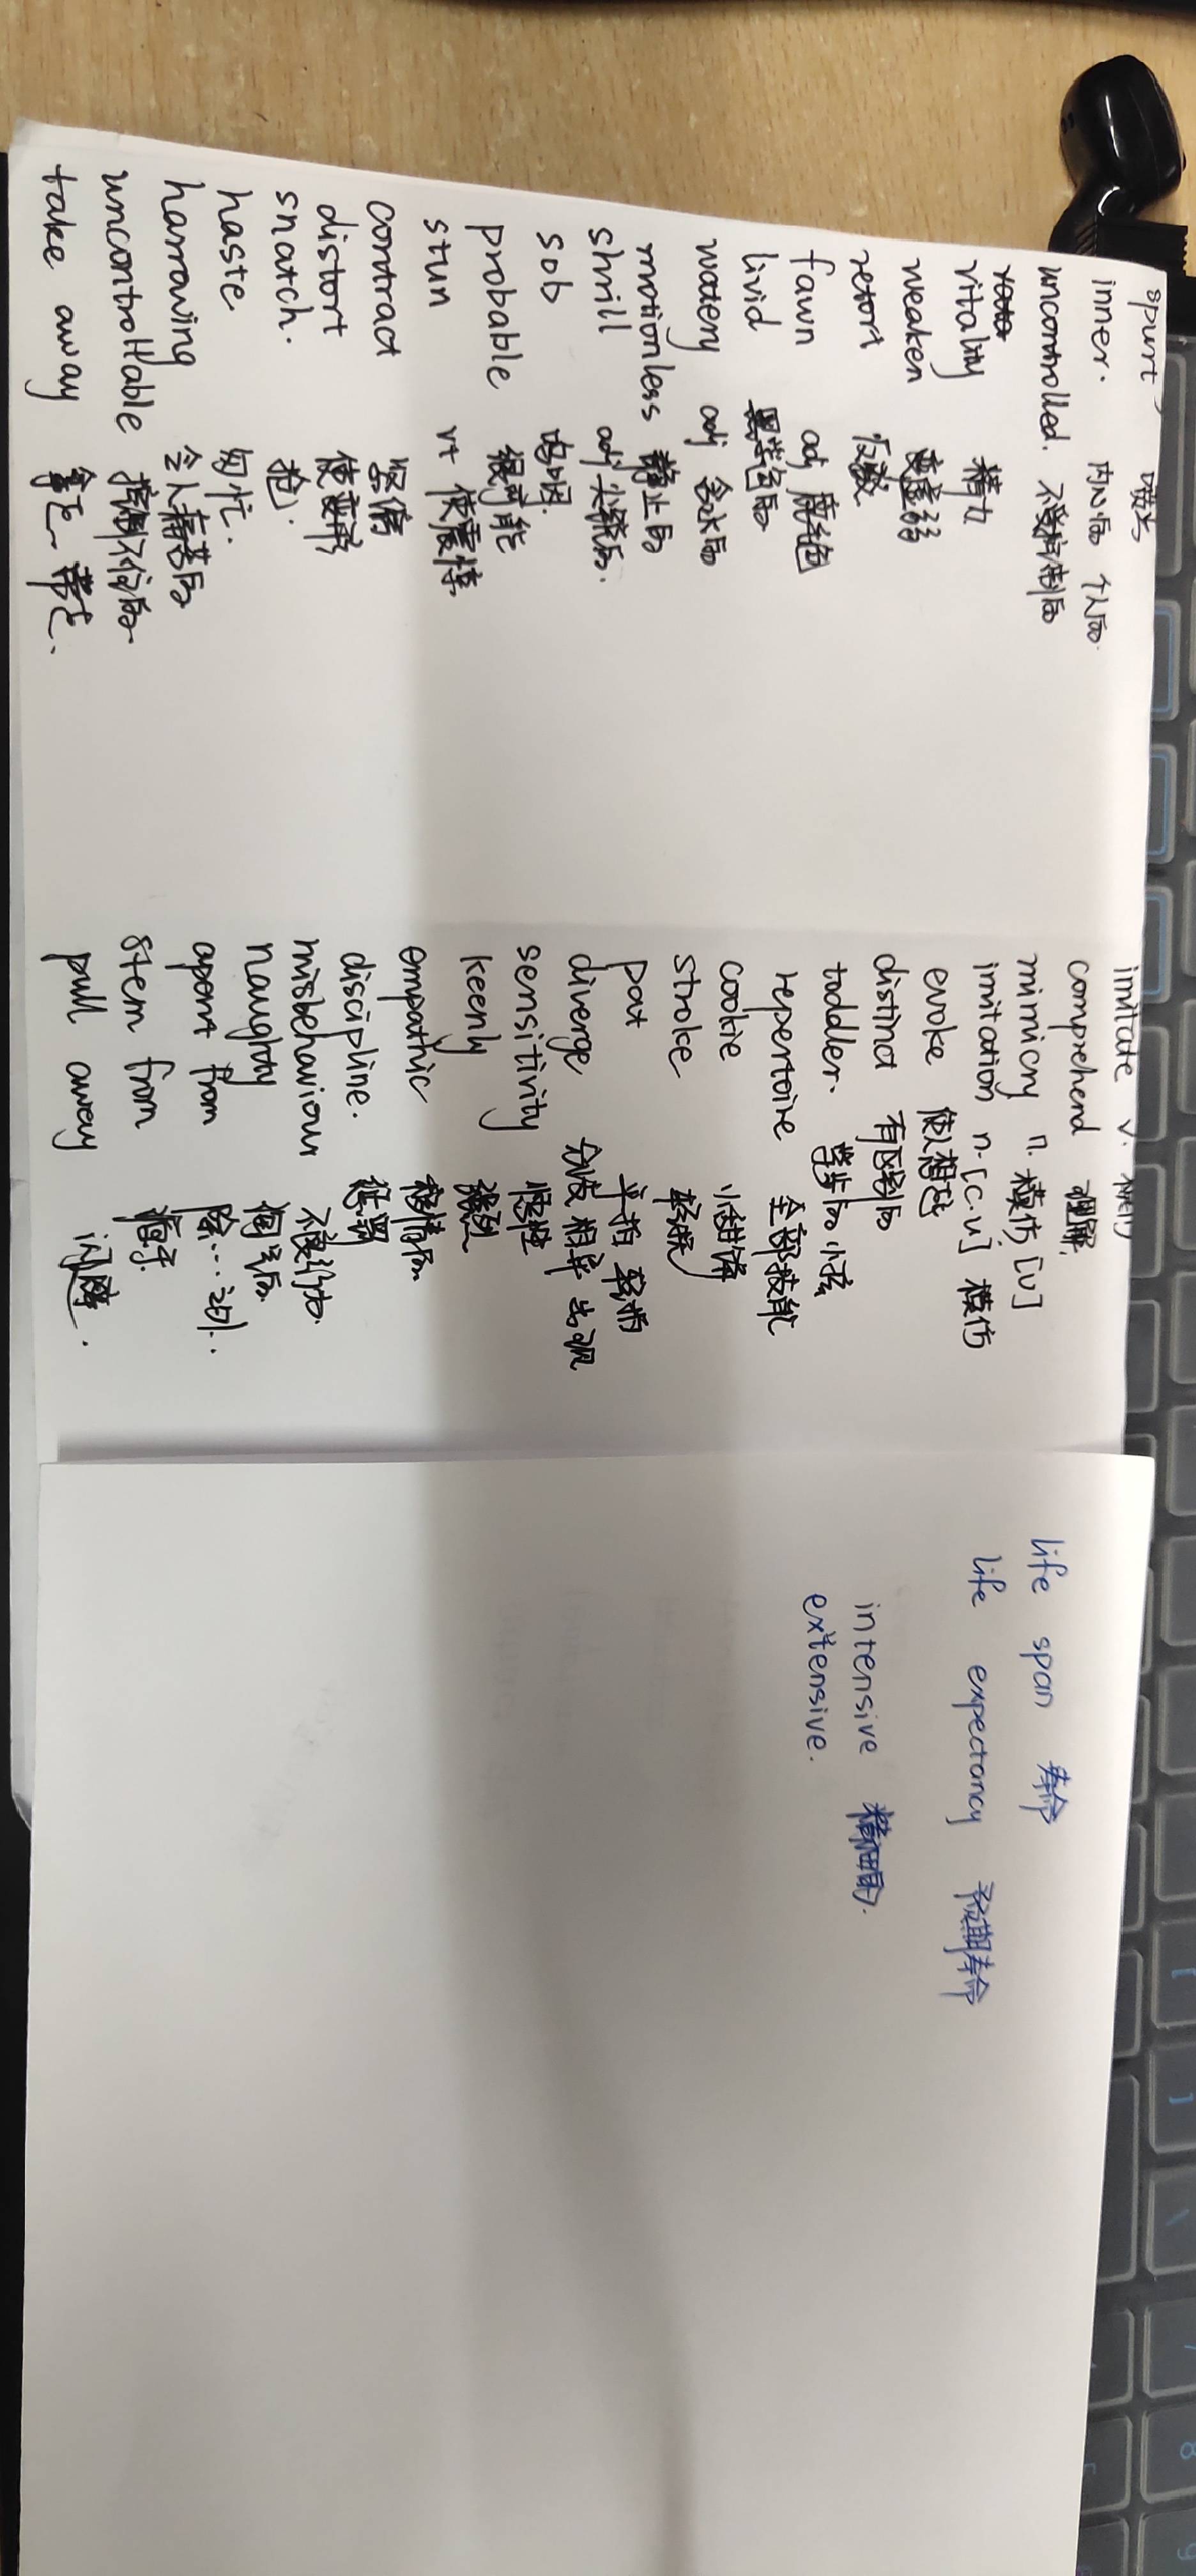 spurt 喷出
inner. 内心的 个人的.
uncontrolled. 不受控制的
vitality 精力
weaken 变虚弱
retort 反驳
fawn adj 鹿色
livid 黑青色的
watery adj 含水的
motionless 静止的
shrill adj 尖锐的.
sob 呜咽.
probable 很可能
stun vt 使震惊
contract 紧缩
distort 使变形
snatch. 抢.
haste 匆忙.
harrowing 令人痛苦的
uncontrollable 控制不住的
take away 拿走 带走.
imitate v. 模仿
comprehend 理解
mimicry n. 模仿 [U]
imitation n. [C.U] 模仿
evoke 使人想起
distinct 有区别的
toddler. 学步的小孩
repertoire 全部技能
cookie 小甜饼
stroke 轻抚
pat 平拍 轻拍
diverge 分歧 相异 出现
sensitivity 悟性
keenly 强烈
empathic 移情的
discipline. 惩罚
misbehaviour 不良行为.
naughty 淘气的
apart from 除...之外.
stem from 源于.
pull away 闪避.
life span 寿命
life expectancy 预期寿命
intensive 精细的.
extensive.